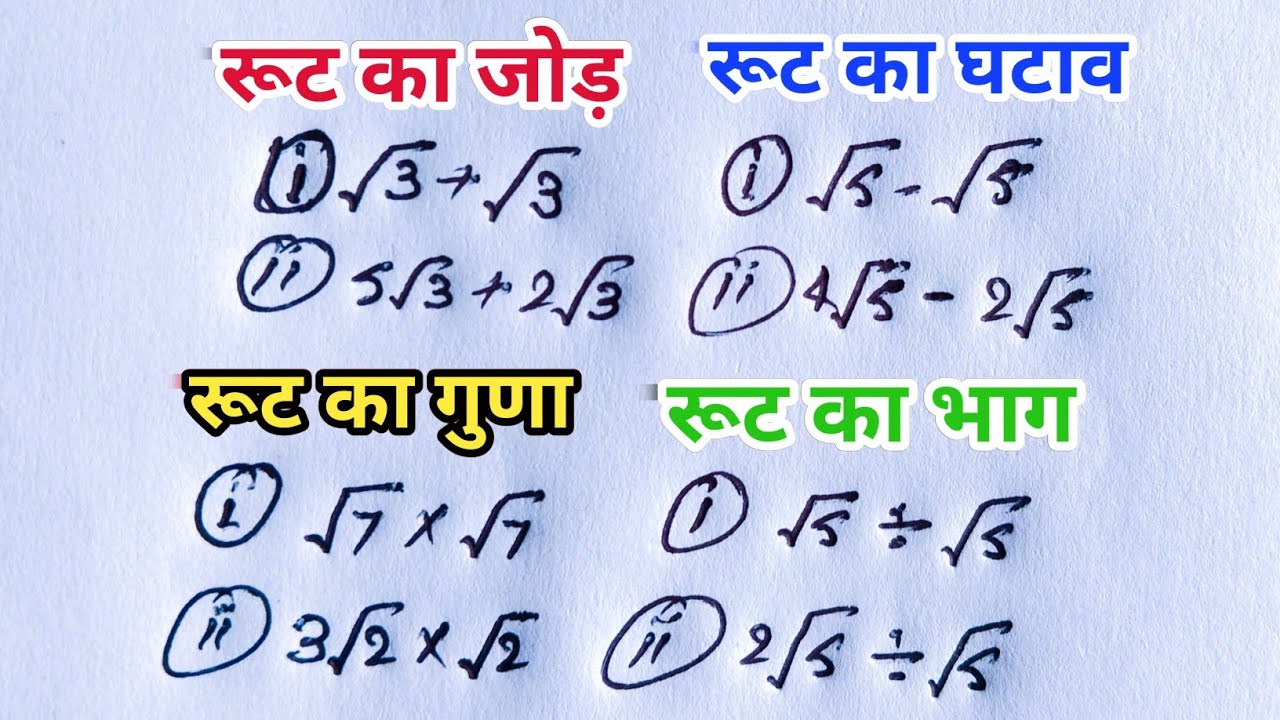 रूट का जोड़
(i) √3 + √3
(ii) 5√3 + 2√3
रूट का घटाव
(i) √5 - √5
(ii) 4√5 - 2√5
रूट का गुणा
(i) √7 × √7
(ii) 3√2 × √2
रूट का भाग
(i) √5 ÷ √5
(ii) 2√5 ÷ √5